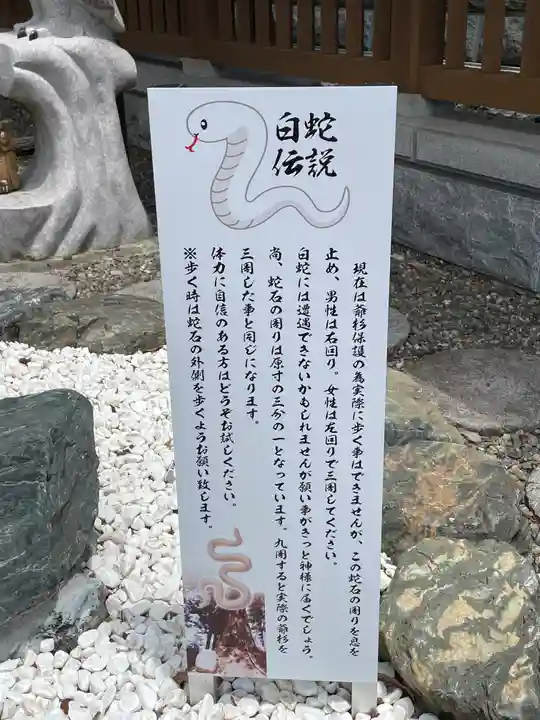 白蛇
伝説
現在は爺杉保護の為実際に歩く事はできませんが、この蛇石の周りを息を
止め、男性は右回り。女性は左回りで三周してください。
白蛇には遭遇できないかもしれませんが願い事がきっと神様に届くでしょう。
尚、蛇石の周りは原寸の三分の一となっています。九周すると実際の爺杉を
三周した事と同じになります。
体力に自信のある方はどうぞお試しください。
※歩く時は蛇石の外側を歩くようお願い致します。